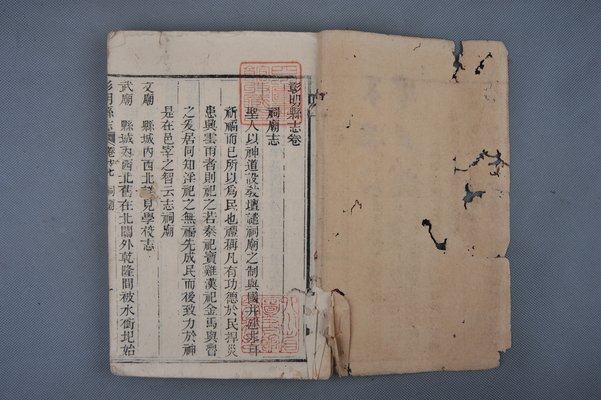 彰明縣志卷
祠廟志
聖人以神道設敎壇祠廟之制與國
祈福而已所以為民也禮稱凡有功德於民捍災
患興雲雨者則祀之若秦祀寶雞漢祀金馬與晉
之爰居同知淫祀之無福先成民而後致力於神
是在邑宰之智云志祠廟
文廟 縣城內西北 見學校志
武廟 縣城內西北舊在北關外乾隆間被水衝圮始
彰明縣志 卷 祠廟